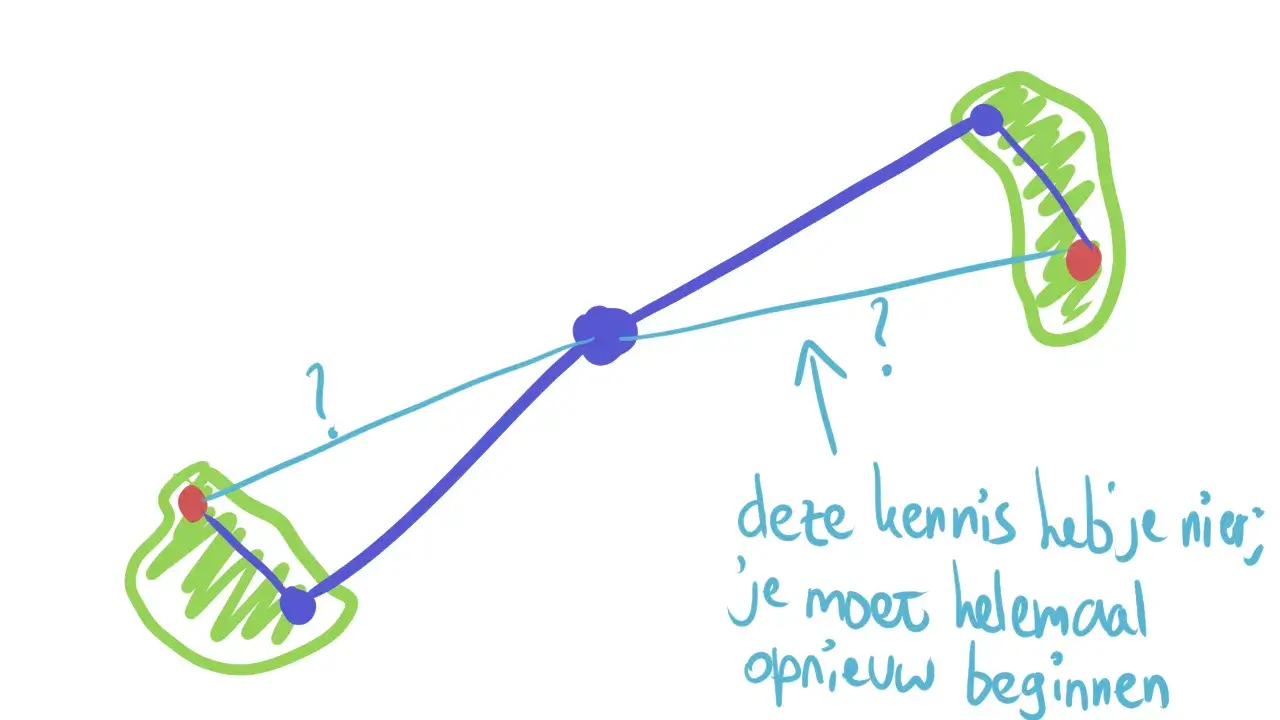 ?
?
deze kennis heb je niet;
je moet helemaal
opnieuw beginnen